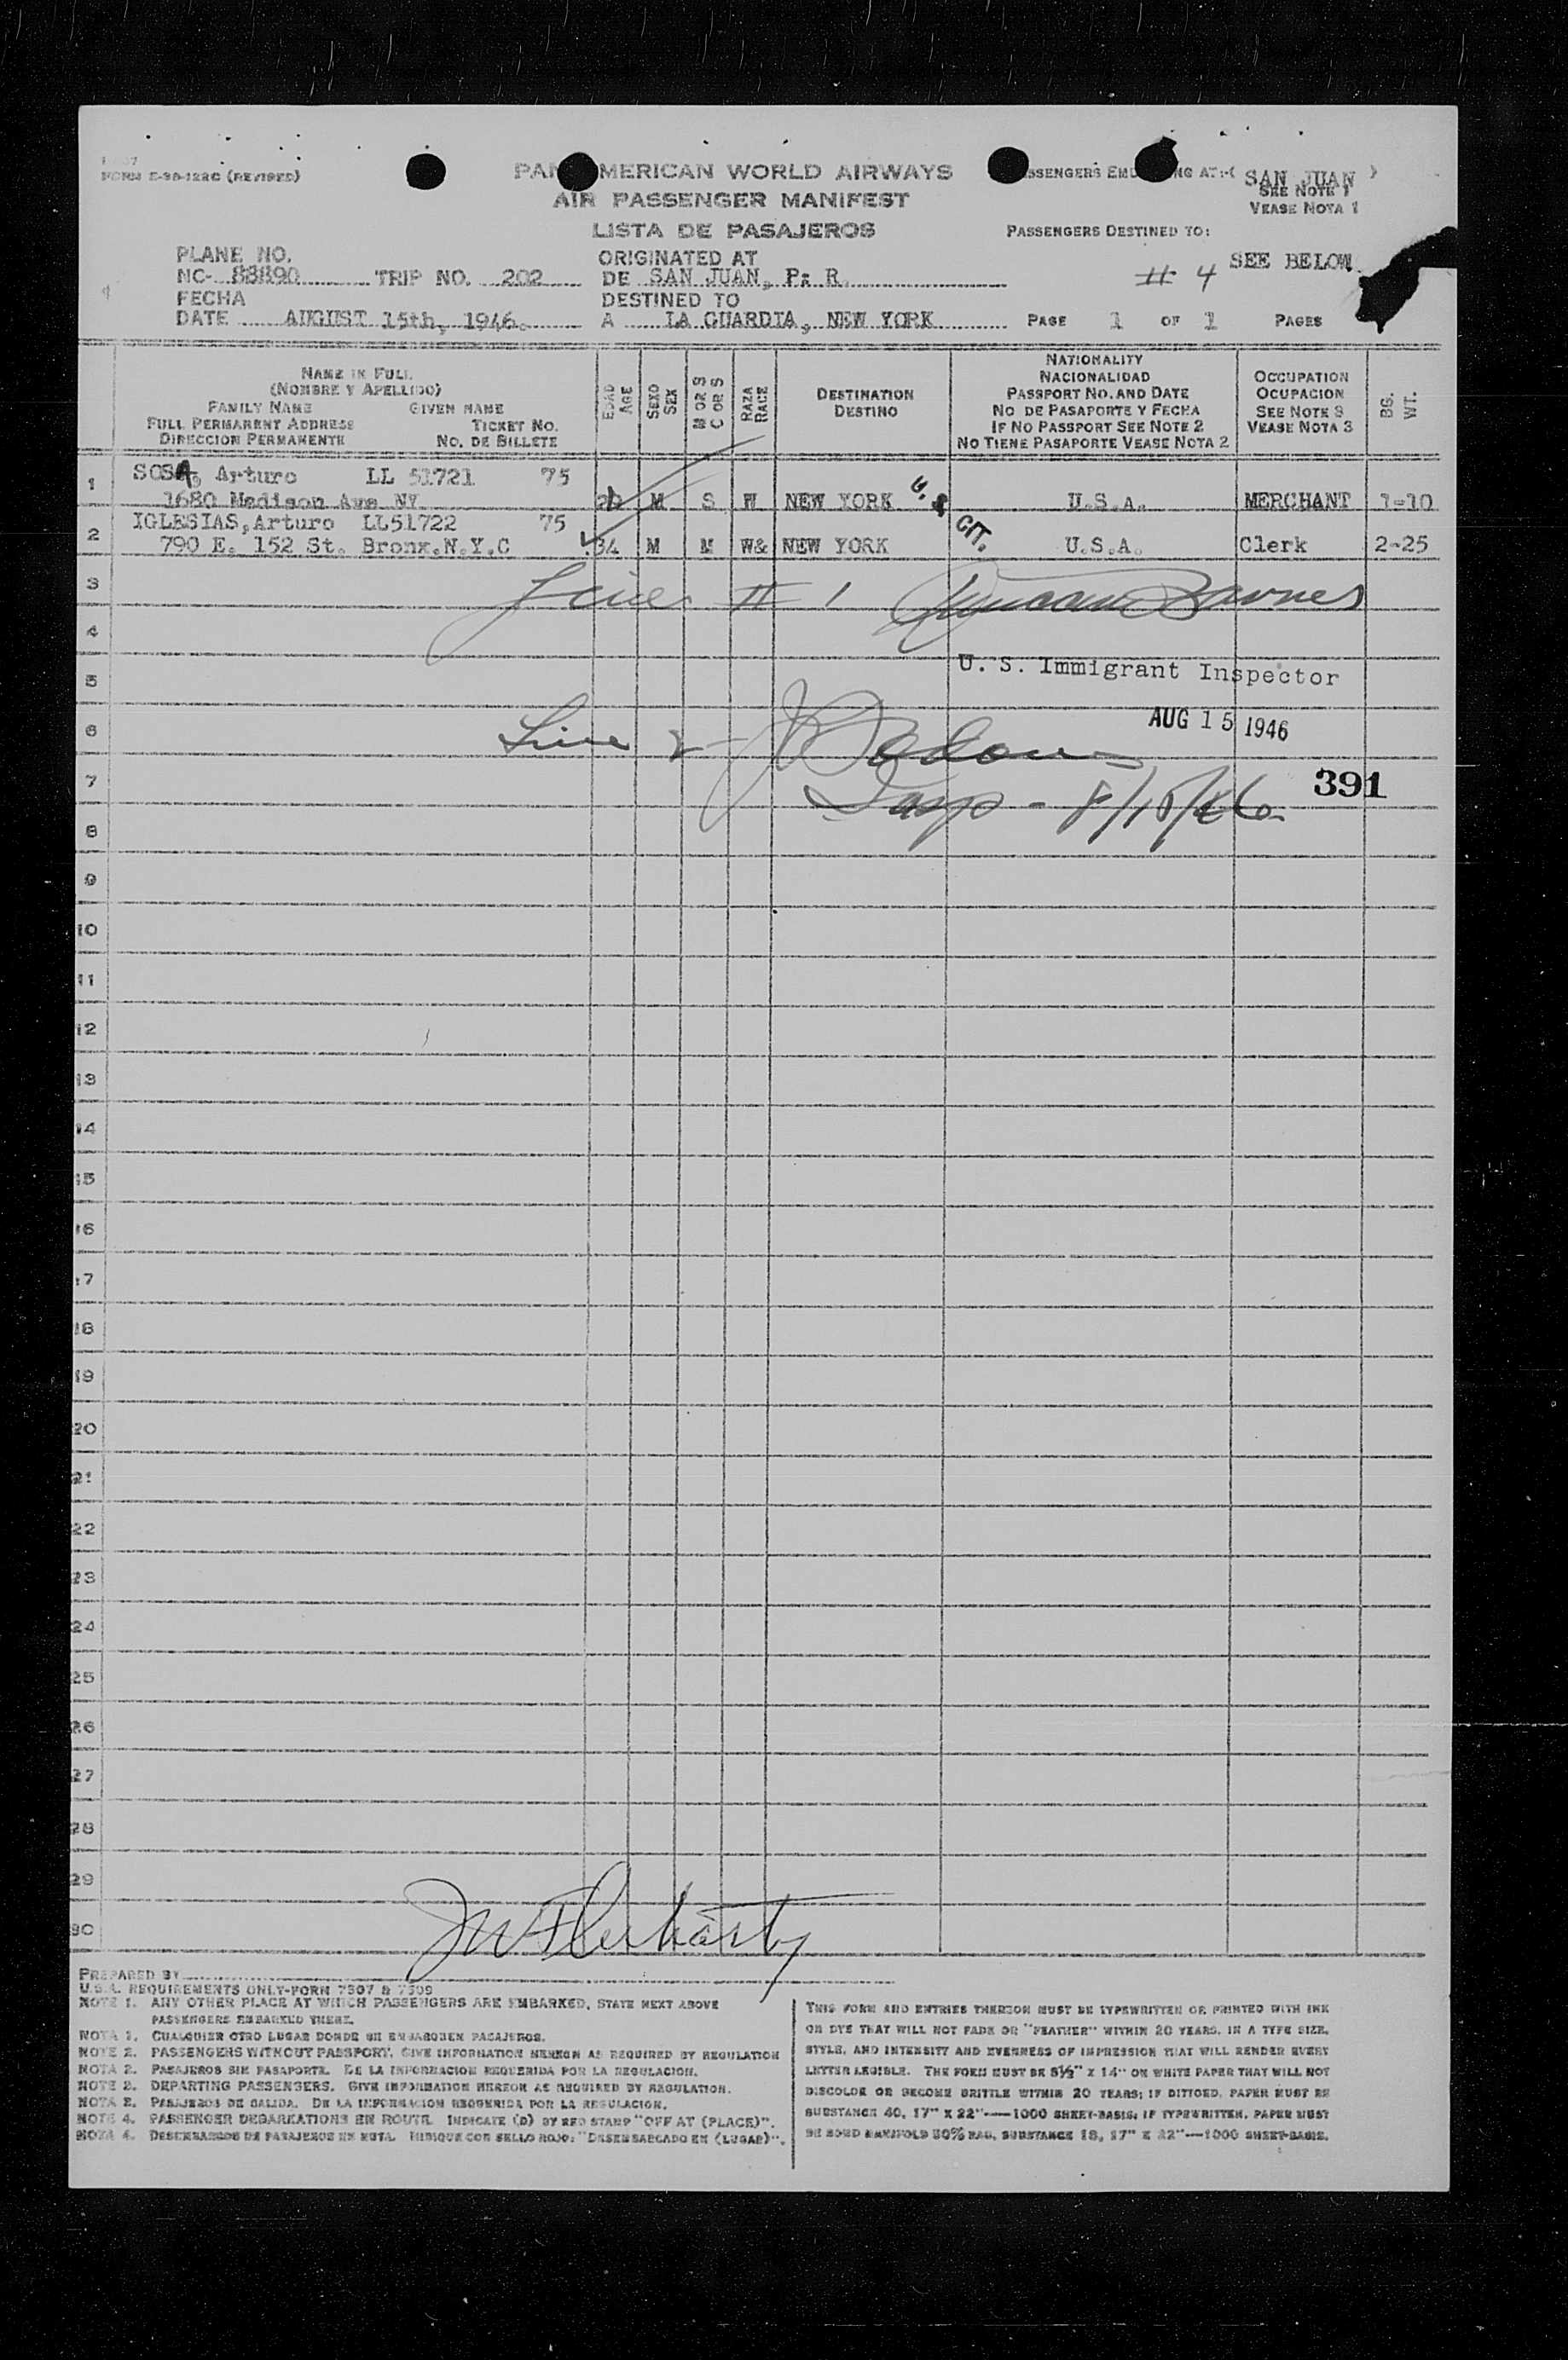 FORM E-98-122C (REVISED)
PAN AMERICAN WORLD AIRWAYS
AIR PASSENGER MANIFEST
LISTA DE PASAJEROS
SAN JUAN
SEE NOTE 1
VEASE NOTA 1
PASSENGERS DESTINED TO:
SEE BELOW
# 4
PLANE NO.
NC- 88890 TRIP NO. 202
FECHA
DATE AUGUST 15th, 1946.
ORIGINATED AT
DE SAN JUAN, P. R.
DESTINED TO
A LA GUARDIA, NEW YORK
PAGE 1 OF 1 PAGES
NAME IN FULL
(NOMBRE Y APELLIDO)
FAMILY NAME GIVEN NAME
FULL PERMANENT ADDRESS TICKET NO.
DIRECCION PERMANENTE NO. DE BILLETE
EDAD
AGE
SEXO
SEX
M OR S
C OR S
RAZA
RACE
DESTINATION
DESTINO
NATIONALITY
NACIONALIDAD
PASSPORT NO. AND DATE
NO DE PASAPORTE Y FECHA
IF NO PASSPORT SEE NOTE 2
NO TIENE PASAPORTE VEASE NOTA 2
OCCUPATION
OCUPACION
SEE NOTE 3
VEASE NOTA 3
BG.
WT.
1 SOSA, Arturo LL 51721 75
1680 Madison Ave NY M S W NEW YORK U.S. U.S.A. MERCHANT 1-10
2 IGLESIAS, Arturo LL51722 75
790 E. 152 St. Bronx.N.Y.C 34 M M W& NEW YORK CIT. U.S.A. Clerk 2-25
3 Line # 1 Duncan Barnes
4
U. S. Immigrant Inspector
5
AUG 15 1946
6 Line 2
7 Insp - 8/15/46
391
8
9
10
11
12
13
14
15
16
17
18
19
20
21
22
23
24
25
26
27
28
29
30
PREPARED BY
U.S.A. REQUIREMENTS ONLY-FORM 7507 & 7509
NOTE 1. ANY OTHER PLACE AT WHICH PASSENGERS ARE EMBARKED, STATE NEXT ABOVE
PASSENGERS EMBARKED THERE.
NOTA 1. CUALQUIER OTRO LUGAR DONDE SE EMBARQUEN PASAJEROS.
NOTE 2. PASSENGERS WITHOUT PASSPORT. GIVE INFORMATION HEREON AS REQUIRED BY REGULATION
NOTA 2. PASAJEROS SIN PASAPORTE. DE LA INFORMACION REQUERIDA POR LA REGULACION.
NOTE 3. DEPARTING PASSENGERS. GIVE INFORMATION HEREON AS REQUIRED BY REGULATION.
NOTA 3. PASAJEROS DE SALIDA. DE LA INFORMACION REQUERIDA POR LA REGULACION.
NOTE 4. PASSENGER DEBARKATIONS EN ROUTE. INDICATE (D) BY RED STAMP "OFF AT (PLACE)".
NOTA 4. DESEMBARCOS DE PASAJEROS EN RUTA. INDIQUE CON SELLO ROJO: "DESEMBARCADO EN (LUGAR)".
THIS FORM AND ENTRIES THEREON MUST BE TYPEWRITTEN OR PRINTED WITH INK
OR DYE THAT WILL NOT FADE OR "FEATHER" WITHIN 20 YEARS, IN A TYPE SIZE,
STYLE, AND INTENSITY AND EVENNESS OF IMPRESSION THAT WILL RENDER EVERY
LETTER LEGIBLE. THE FORM MUST BE 8½" X 14" ON WHITE PAPER THAT WILL NOT
DISCOLOR OR BECOME BRITTLE WITHIN 20 YEARS; IF DITTOED, PAPER MUST BE
SUBSTANCE 40, 17" X 22"—1000 SHEET-BASIS; IF TYPEWRITTEN, PAPER MUST
BE BOND MANIFOLD 50% RAG, SUBSTANCE 18, 17" X 22"—1000 SHEET-BASIS.